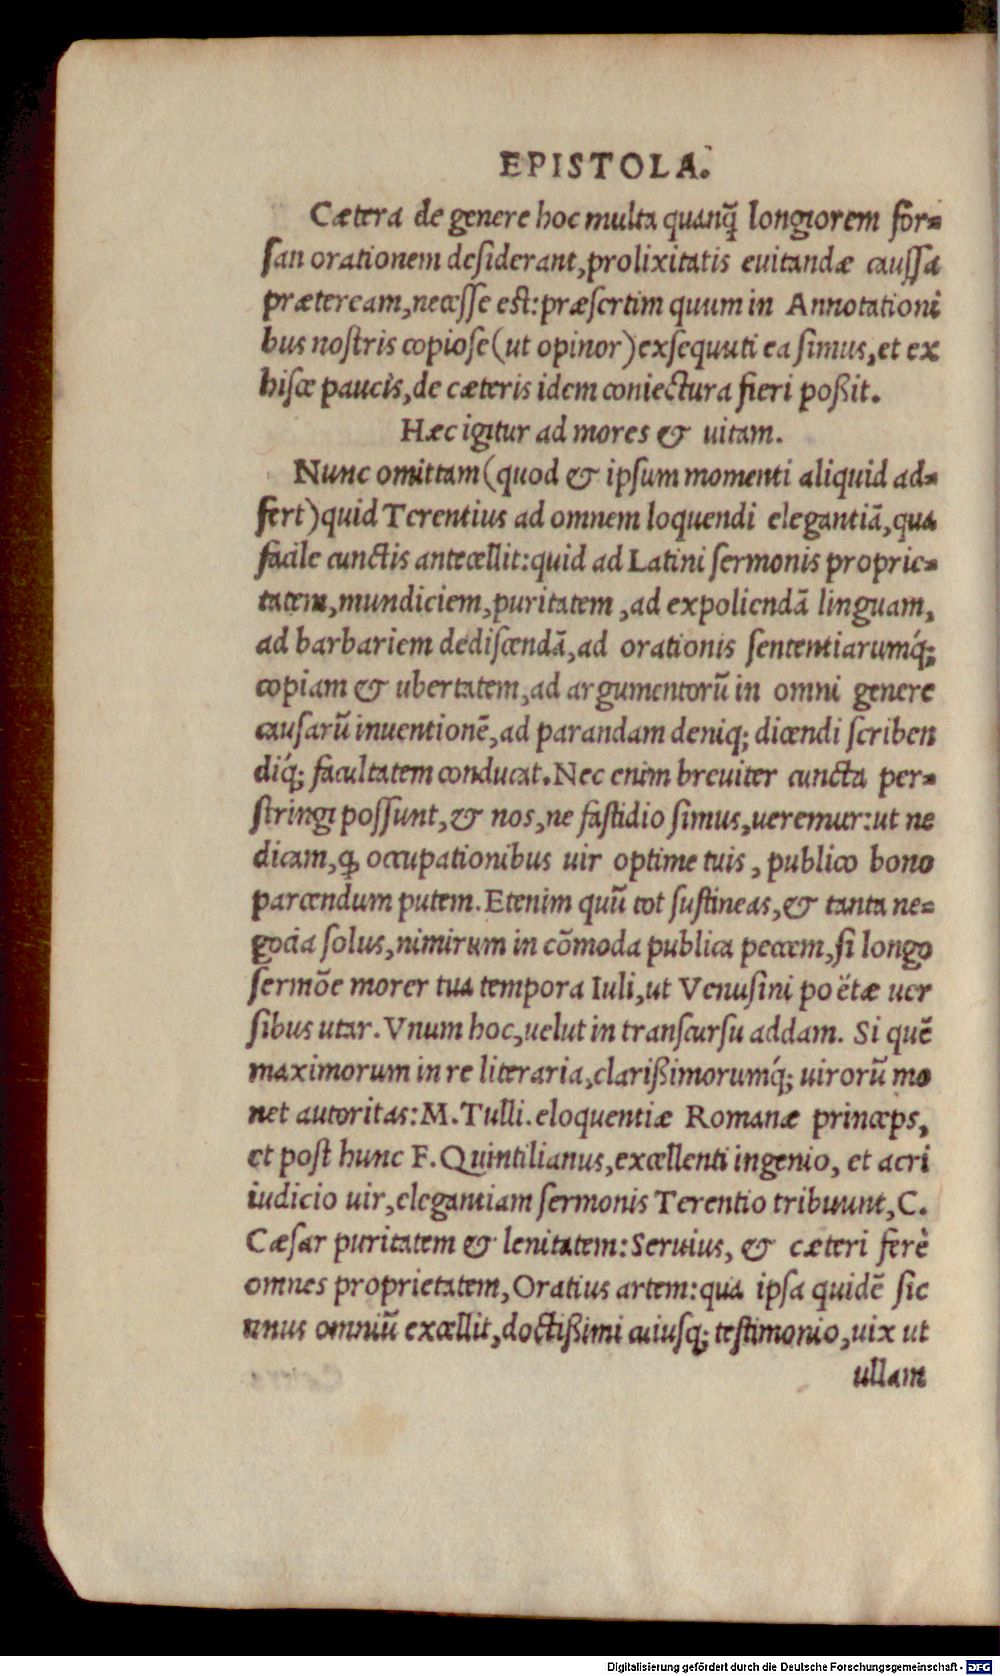 EPISTOLA.
Cætera de genere hoc multa quanꝗ̃ longiorem for-
san orationem desiderant, prolixitatis euitandæ caussa
præteream, necesse est: præsertim quum in Annotationi
bus nostris copiose (ut opinor) exsequuti ea simus, et ex
hisce paucis, de cæteris idem coniectura fieri poßit.
Hæc igitur ad mores & uitam.
Nunc omittam (quod & ipsum momenti aliquid ad-
fert) quid Terentius ad omnem loquendi elegantiã, qua
facile cunctis antecellit: quid ad Latini sermonis proprie-
tatem, mundiciem, puritatem, ad expoliendã linguam,
ad barbariem dediscendã, ad orationis sententiarumq́;
copiam & ubertatem, ad argumentorũ in omni genere
causarũ inuentionẽ, ad parandam deniq; dicendi scriben
diq́; facultatem conducat. Nec enim breuiter cuncta per-
stringi possunt, & nos, ne fastidio simus, ueremur: ut ne
dicam, ꝗ occupationibus uir optime tuis, publico bono
parcendum putem. Etenim quũ tot sustineas, & tanta ne-
gocia solus, nimirum in cõmoda publica peccem, si longo
sermõe morer tua tempora Iuli, ut Venusini poëtæ uer
sibus utar. Vnum hoc, uelut in transcursu addam. Si quẽ
maximorum in re literaria, clarißimorumq́; uirorũ mo
net autoritas: M. Tulli. eloquentiæ Romanæ princeps,
et post hunc F. Quintilianus, excellenti ingenio, et acri
iudicio uir, elegantiam sermonis Terentio tribuunt, C.
Cæsar puritatem & lenitatem: Seruius, & cæteri ferè
omnes proprietatem, Oratius artem: qua ipsa quidẽ sic
unus omniũ excellit, doctißimi cuiusq; testimonio, uix ut
ullam
Digitalisierung gefördert durch die Deutsche Forschungsgemeinschaft - DFG